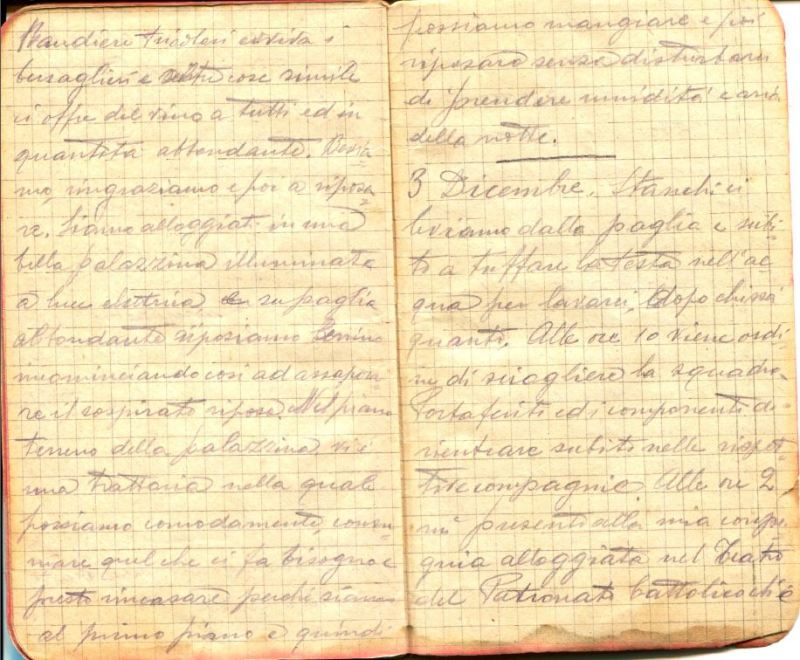 Bandiere tricolori evviva i
bersaglieri e altre cose simile
ci offre del vino a tutti ed in
quantità abbondante. Bevia=
mo, ringraziamo e poi a riposa
re. Siamo alloggiati in una
bella palazzina illuminata
a luce elettrica, su paglia
abbondante riposiamo
incominciando così ad assapora
re il sospirato riposo. Nel piano
terreno della palazzina vi è
una trattoria nella quale
possiamo comodamente, consu
mare quel che ci fa bisogno e
presto rincasare perché siamo
al primo piano e quindi
possiamo mangiare e poi
riposare senza disturbarci
di prendere umidità e aria
della notte.
3 Dicembre. Stanchi ci
leviamo dalla paglia e subi=
to a tuffare la testa nell'ac=
qua per lavarci, dopo chissà
quanto. Alle ore 10 viene ordi=
ne di sciogliere la squadra
Portaferiti ed i componenti di
rientrare subito nelle rispet=
tive compagnie. Alle ore 2
mi presento alla mia compa
gnia alloggiata nel Teatro
del Patronato Cattolico